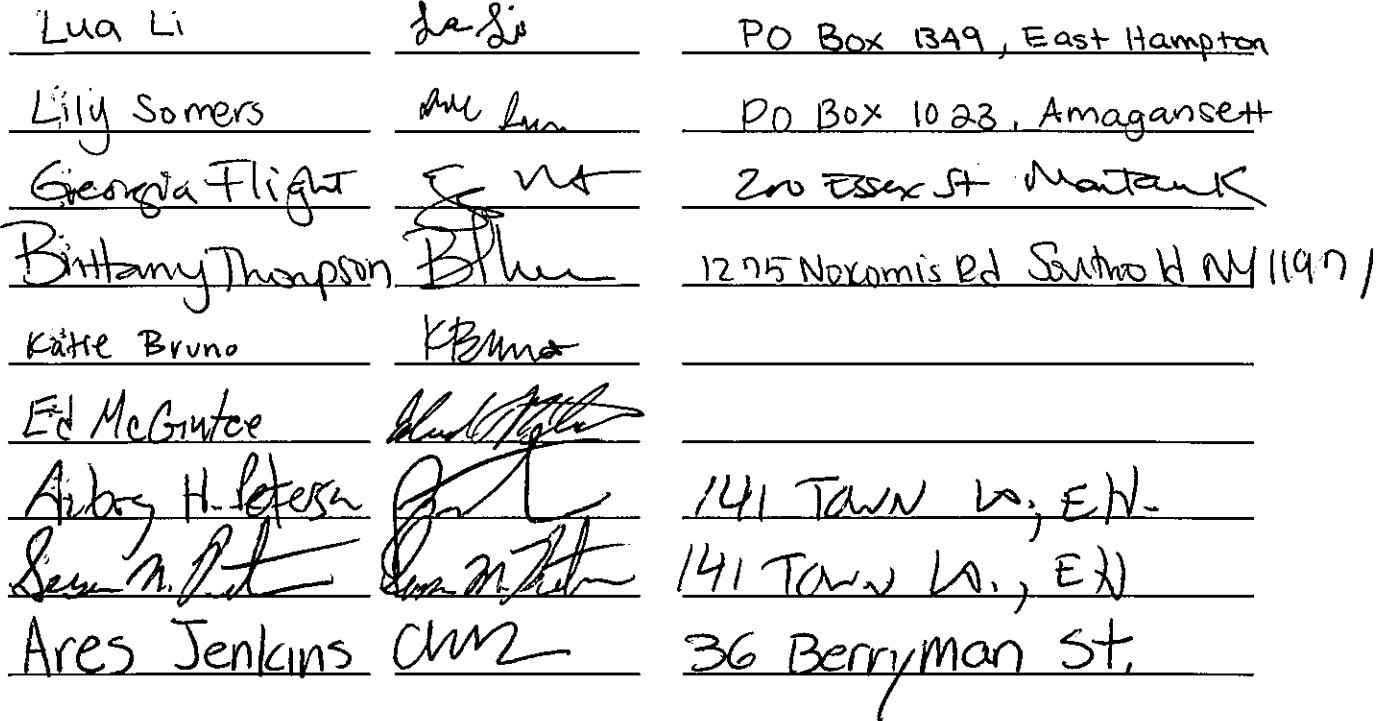 Lua Li PO Box 1349, East Hampton
Lily Somers PO Box 1023, Amagansett
Georgia Flight 200 Essex St Montauk
Brittany Thompson 1275 Nokomis Rd Southold NY 11971
Katie Bruno KBruno
Ed McGintee
H. Peterson 141 Town Ln., E.H.
Susan M. 141 Town Ln., EH
Ares Jenkins 36 Berryman St.